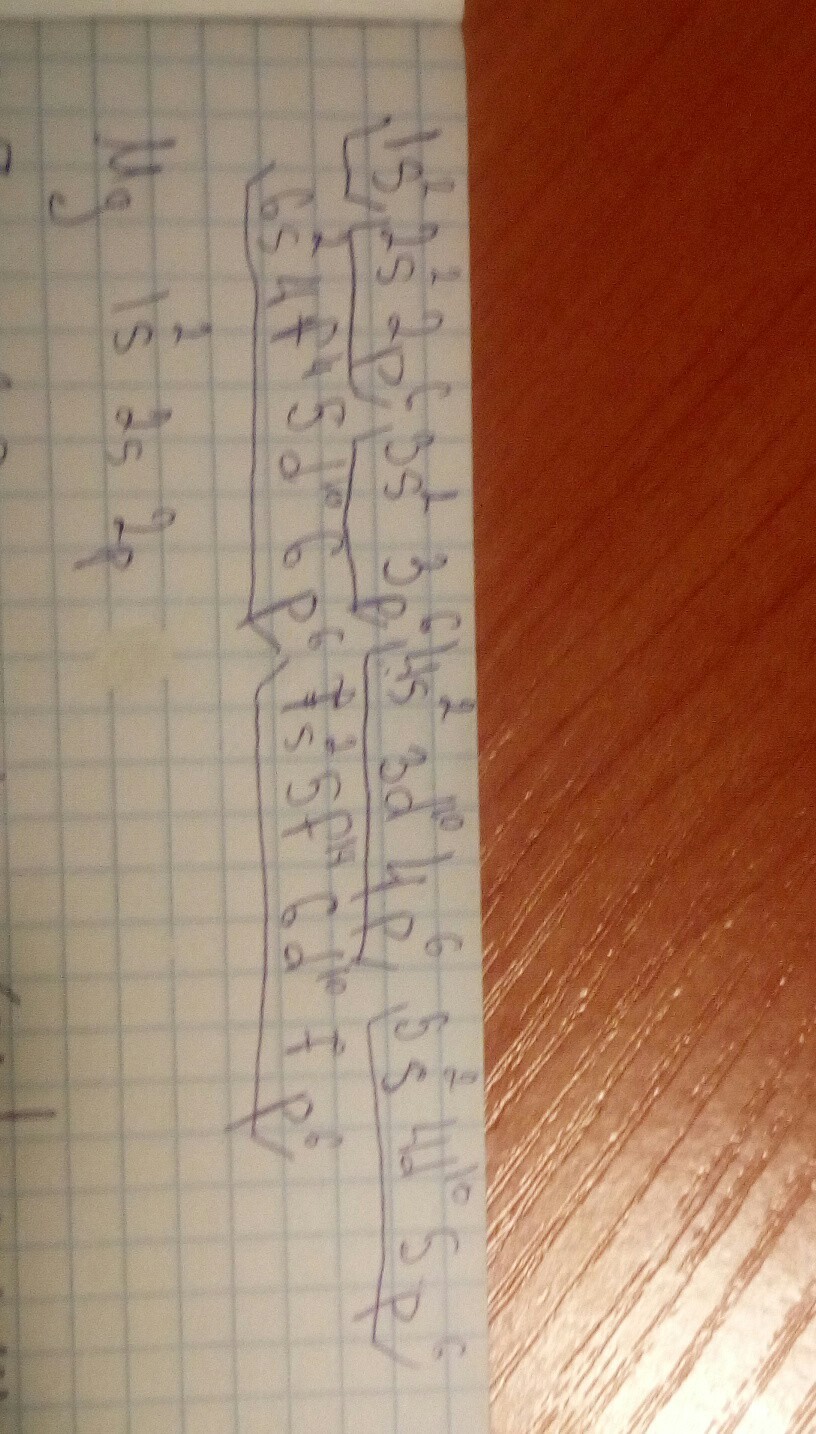 1s² 2s² 2p⁶ 3s² 3p⁶ 4s² 3d¹⁰ 4p⁶ 5s² 4d¹⁰ 5p⁶
6s² 4f¹⁴ 5d¹⁰ 6p⁶ 7s² 5f¹⁴ 6d¹⁰ 7p⁶
Mg 1s² 2s 2p